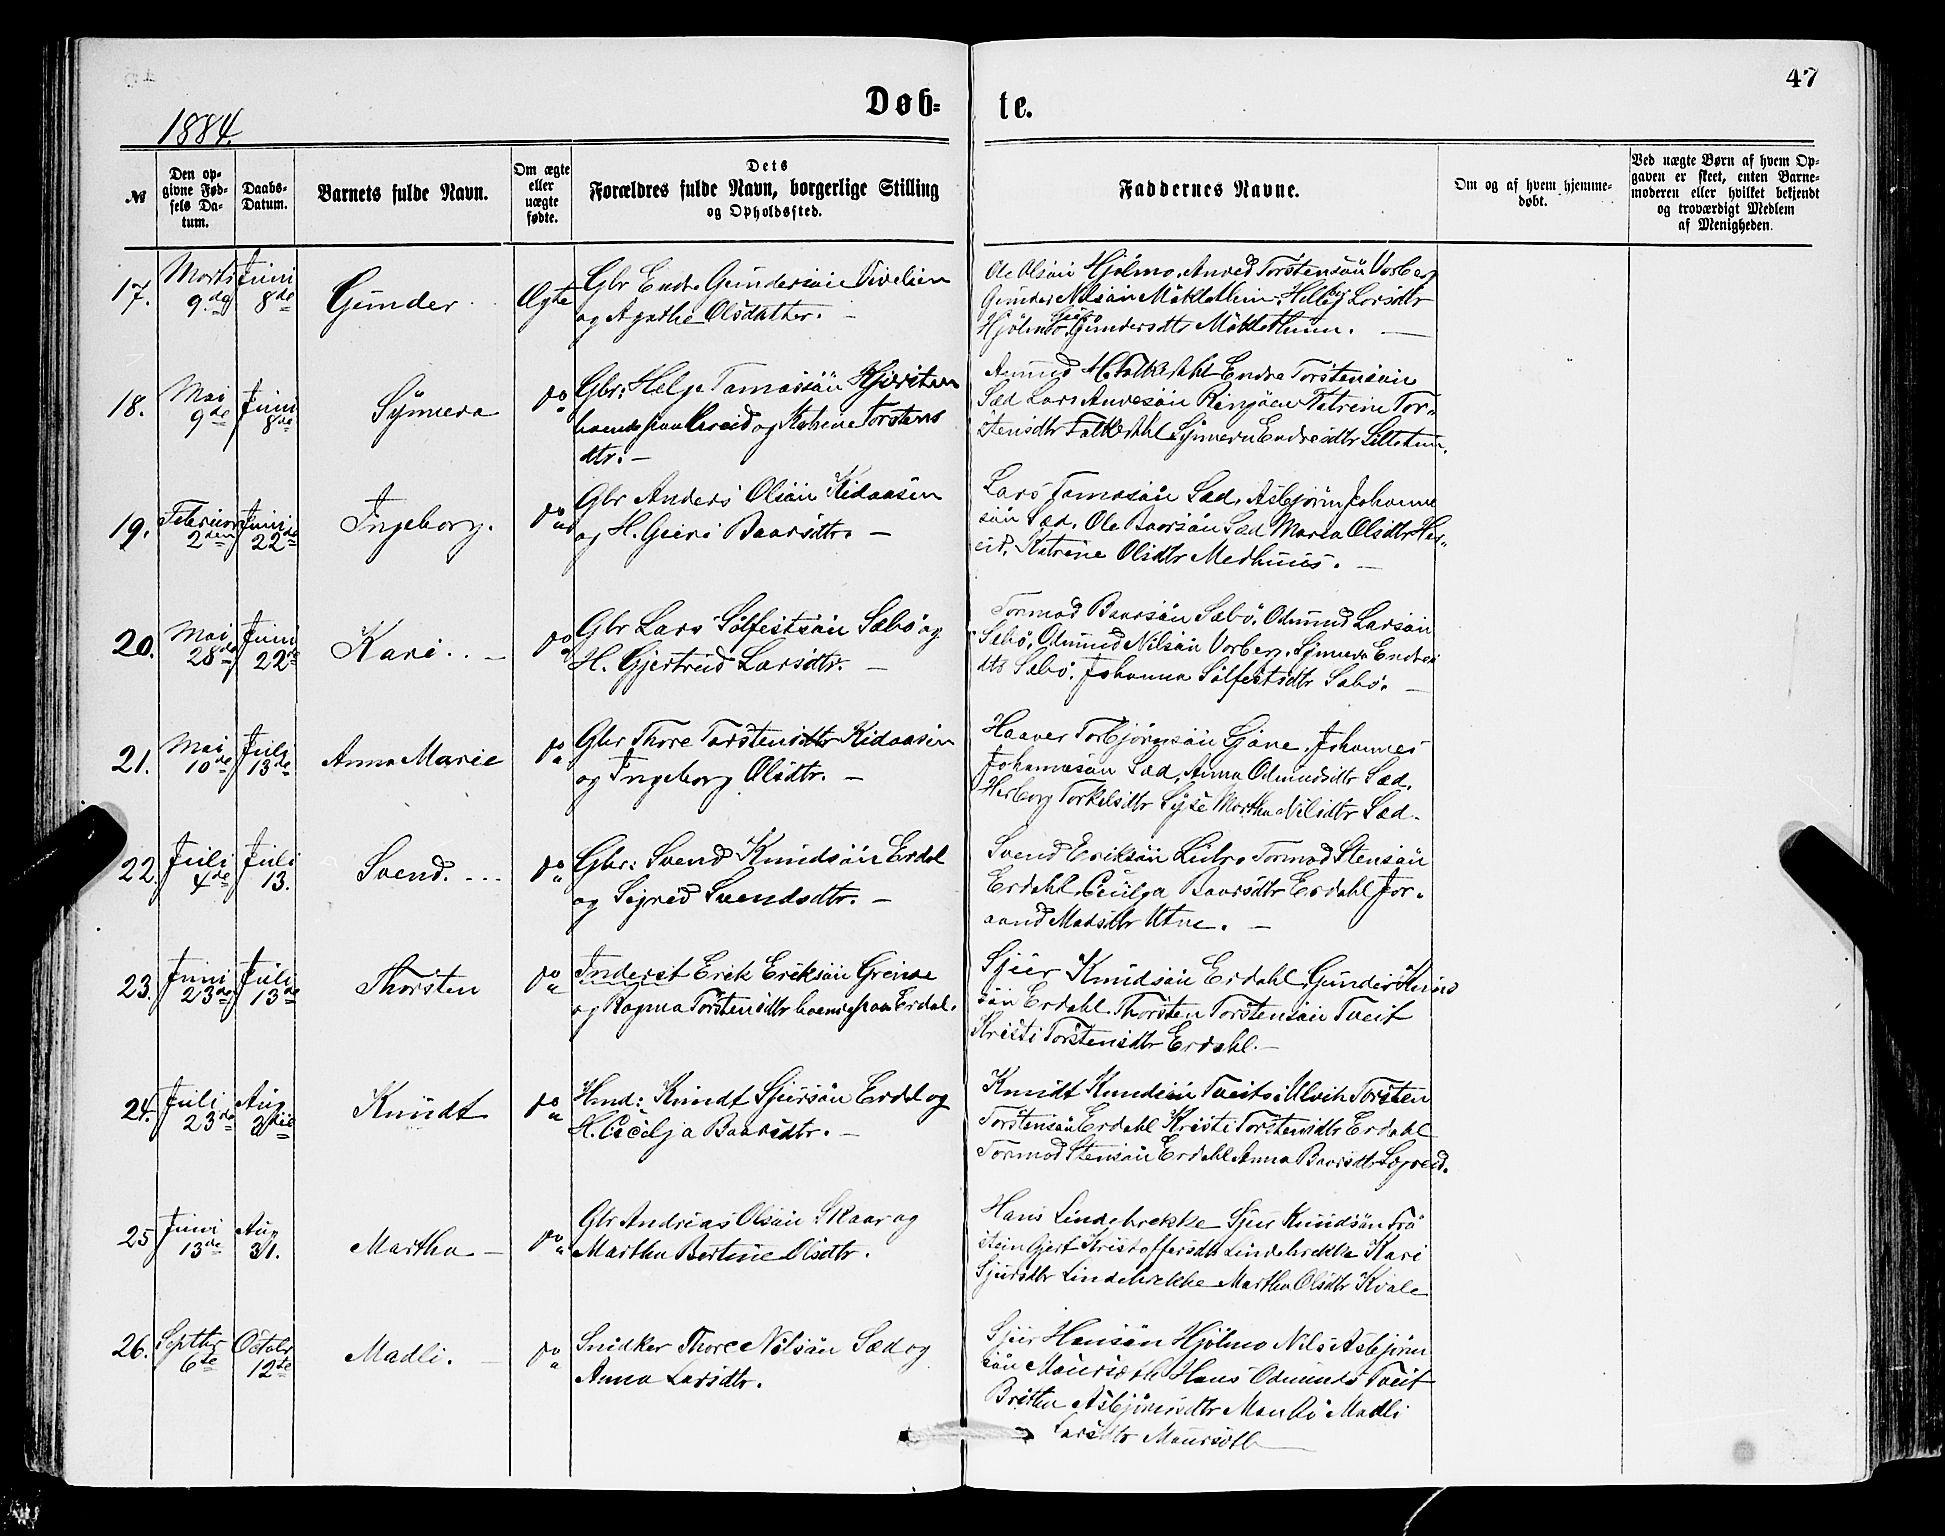 47
Døb-
te.
1884.
№
Den op-
givne Fød-
sels Da-
tum.
Daabs-
Datum.
Barnets fulde Navn.
Om ægte
eller
uægte
fødte.
Dets
Forældres fulde Navn, borgerlige Stilling
og Opholdssted.
Faddernes Navne.
Om og af hvem hjemme-
døbt.
Ved uægte Børn af hvem Op-
gaven er skeet, enten Barne-
moderen eller hvilket bekjendt
og troværdigt Medlem
af Menigheden.
17.
Marts
9. de
Juni
8 de
Gunder
Ægte
Gbr Endre Gundersøn
og Agathe Olsdatter. —
Ole Olsøn Hjølmo, Anved Torstensøn Vorberg
Gunder Nilsøn Mæklethun, Larsdtr
Hjølmo, Gundersdtr Mæklethun. —
18.
Mai
9 de
Juni
8 de
Synneva
do
Gbr: Helje Tamassøn
boende paa og Katrine Torstens
dtr. —
Amund Endre Torstensøn
Sæd Lars Anvesøn Ringøen Katrine Tor-
stensdtr Synneva Endresdtr Lillethun.
19.
Februar
2 den
Juni
22 de
Ingeborg.
do
Gbr Anders Olsøn Kidaasen
og H. Guri Baarsdtr. —
Lars Tamasøn Sæd, Asbjørn Johanne
søn Sæd, Ole Baarsøn Sæd Marta Olsdtr Her-
eid, Katrine Olsdtr Medhuus. —
20.
Mai
28 de
Juni
22 de
Kari. . —
do
Gbr Lars Sølfestsøn Sæbø og
H. Gjertrud Larsdtr. —
Tormod Baarsøn Sæbø, Odmund Larsøn
Sæbø, Odmund Nilsøn Vorberg, Synneva Endres
dtr Sæbø. Johanna Sølfestsdtr Sæbø. —
21.
Mai
10 de
Juli
13 de
Anna Marie
do
Gbr Thore Torstensdtr Kidaasen
og Ingeborg Olsdtr. —
Haaver Torbjørnsøn Gjøne, Johannes
Johannesøn Sæd, Anna Odmundsdtr Sæd,
Herborg Torkelsdtr Syse Martha Nilsdtr Sæd.
22.
Juli
4 de
Juli
13.
Svend. . . .
do
Gbr: Svend Knudsøn Erdal
og Sigrid Svendsdtr. —
Svend Eriksøn Lutro Tormod Stensøn
Erdahl, Baarsdtr Erdahl Jor-
aand Madsdtr Utne. —
23.
Juni
23 de
Juli
13 de
Thorsten
do
Inderst Erik Eriksøn
og Ragna Torstensdtr boende paa Erdal.
Sjur Knudsøn Erdahl, Gunder Knud
søn Erdahl, Thorsten Torstensøn Tveit
Kristi Torstensdtr Erdahl. —
24.
Juli
23 de
Aug
3 die
Knudt
do
Hmd: Knudt Sjursøn Erdal og
H. Cecilja Baarsdtr. —
Knudt Knudsøn Tveito i Ulvik Torsten
Torstensøn Erdahl Kristi Torstensdtr Erdahl
Tormod Stensøn Erdahl Anna Baarsdtr Legreid.
25
Juni
13 de
Aug
31.
Martha —
do
Gbr Andrias Olsøn Skaar og
Martha Bertine Olsdtr.
Hans Lindebrekke Sjur Knudsøn Trø
stein Gjert Kristoffersdtr Lindebrekke Kari
Sjursdtr Lindebrekke Martha Olsdtr Kvale
26.
Septbr
6 te
Octobr
12 te
Madli. —
do
Snidker Thore Nilsøn Sæd og
Anna Larsdtr.
Sjur Hansøn Hjølmo Nils Asbjørn
søn Maursæth Hans Odmunds Tveit
Britha Asbjørnsdtr Madli
Larsdtr Maursæth —